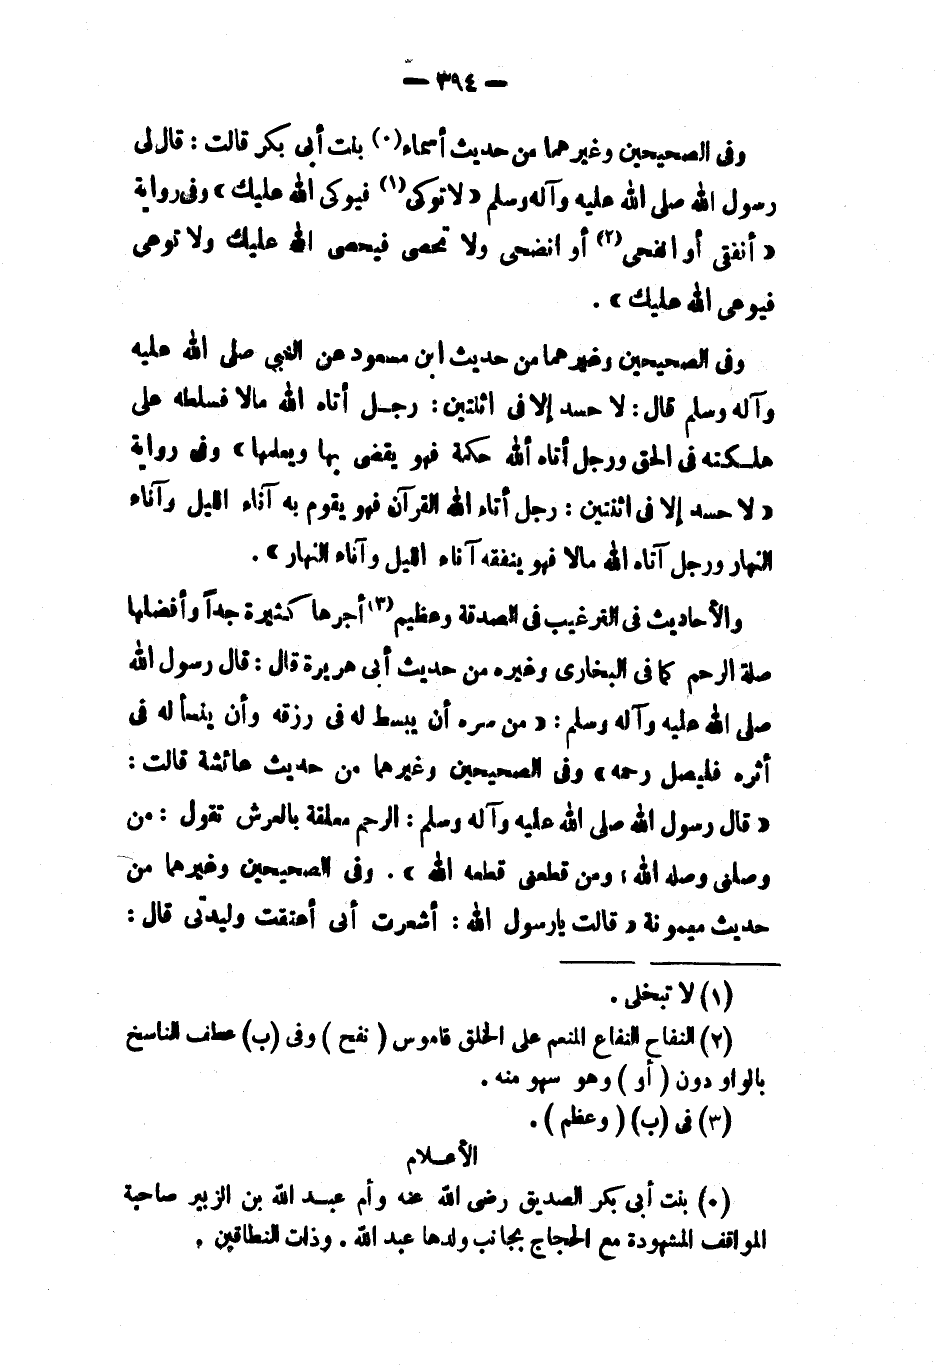 — ٣٩٤ —
وفى الصحيحين وغيرهما من حديث أسماء(٠) بنت أبى بكر قالت : قال لى
رسول الله صلى الله عليه وآله وسلم « لا توكى(١) فيوكى الله عليك » وفى رواية
« أنفقى أو انفحى(٢) أو انضحى ولا تحصى فيحصى الله عليك ولا توعى
فيوعى الله عليك » .
وفى الصحيحين وغيرهما من حديث ابن مسعود عن النبي صلى الله عليه
وآله وسلم قال : لا حسد إلا فى اثنتين : رجل أتاه الله مالا فسلطه على
هلكته فى الحق ورجل أتاه الله حكمة فهو يقضى بها ويعلمها » وفى رواية
« لا حسد إلا فى اثنتين : رجل أتاه الله القرآن فهو يقوم به آناء الليل وآناء
النهار ورجل آتاه الله مالا فهو ينفقه آناء الليل وآناء النهار » .
والأحاديث فى الترغيب فى الصدقة وعظيم(٣) أجرها كثيرة جداً وأفضلها
صلة الرحم كما فى البخارى وغيره من حديث أبى هريرة قال : قال رسول الله
صلى الله عليه وآله وسلم : « من سره أن يبسط له فى رزقه وأن ينسأ له فى
أثره فليصل رحمه » وفى الصحيحين وغيرهما من حديث عائشة قالت :
« قال رسول الله صلى الله عليه وآله وسلم : الرحم معلقة بالعرش تقول : من
وصلنى وصله الله ؛ ومن قطعنى قطعه الله » . وفى الصحيحين وغيرهما من
حديث ميمونة « قالت يارسول الله : أشعرت أنى أعتقت وليدتى قال :
(١) لا تبخلى .
(٢) النفاح النفاع المنعم على الخلق قاموس ( نفح ) وفى (ب) عطف الناسخ
بالواو دون ( أو ) وهو سهو منه .
(٣) فى (ب) ( وعظم ) .
الأعلام
(٠) بنت أبى بكر الصديق رضى الله عنه وأم عبد الله بن الزبير صاحبة
المواقف المشهودة مع الحجاج بجانب ولدها عبد الله . وذات النطاقين .